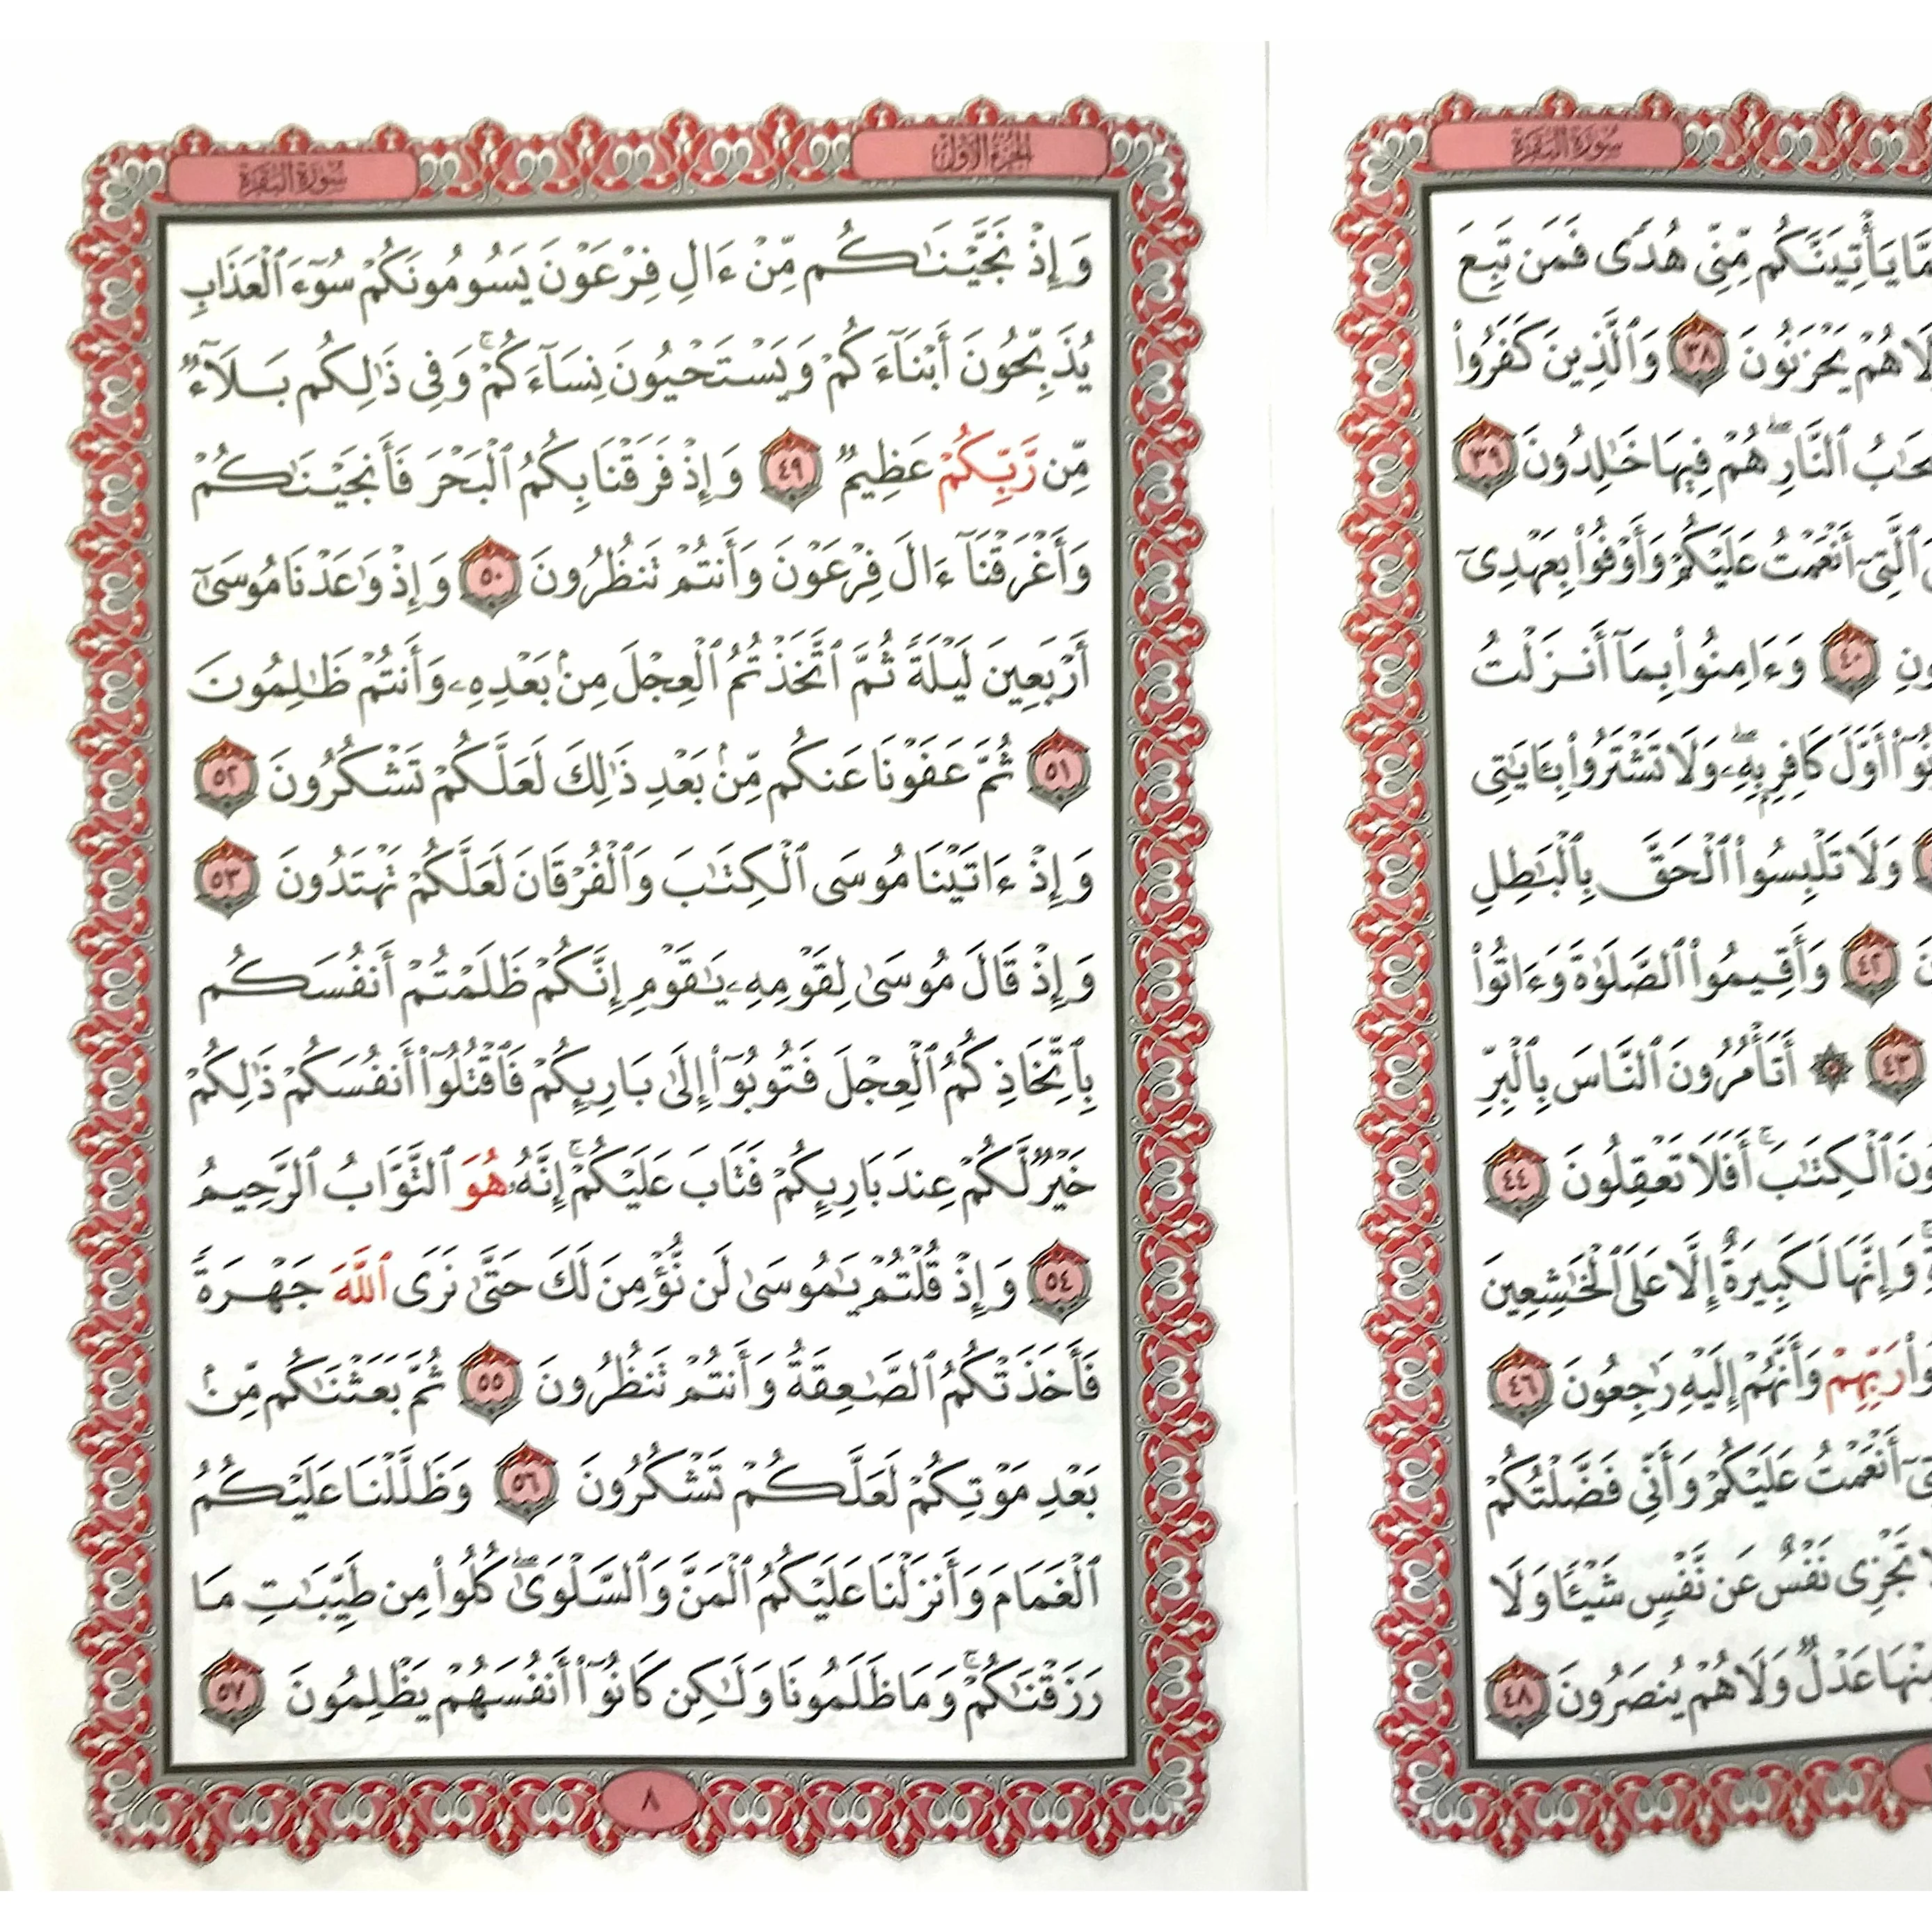 سورة البقرة
مَّا يَأْتِيَنَّكُم مِّنِّى هُدًى فَمَن تَبِعَ
هُمْ يَحْزَنُونَ ٣٨ وَٱلَّذِينَ كَفَرُوا۟
ٱلنَّارِ ۖ هُمْ فِيهَا خَـٰلِدُونَ ٣٩
ٱلَّتِىٓ أَنْعَمْتُ عَلَيْكُمْ وَأَوْفُوا۟ بِعَهْدِىٓ
٤٠ وَءَامِنُوا۟ بِمَآ أَنزَلْتُ
أَوَّلَ كَافِرٍۭ بِهِۦ ۖ وَلَا تَشْتَرُوا۟ بِـَٔايَـٰتِى
وَلَا تَلْبِسُوا۟ ٱلْحَقَّ بِٱلْبَـٰطِلِ
٤٢ وَأَقِيمُوا۟ ٱلصَّلَوٰةَ وَءَاتُوا۟
٤٣ ۞ أَتَأْمُرُونَ ٱلنَّاسَ بِٱلْبِرِّ
ٱلْكِتَـٰبَ ۚ أَفَلَا تَعْقِلُونَ ٤٤
وَإِنَّهَا لَكَبِيرَةٌ إِلَّا عَلَى ٱلْخَـٰشِعِينَ
رَبِّهِمْ وَأَنَّهُمْ إِلَيْهِ رَٰجِعُونَ ٤٦
أَنْعَمْتُ عَلَيْكُمْ وَأَنِّى فَضَّلْتُكُمْ
تَجْزِى نَفْسٌ عَن نَّفْسٍ شَيْـًٔا وَلَا
مِنْهَا عَدْلٌ وَلَا هُمْ يُنصَرُونَ ٤٨
الجزء الأول
سورة البقرة
وَإِذْ نَجَّيْنَـٰكُم مِّنْ ءَالِ فِرْعَوْنَ يَسُومُونَكُمْ سُوٓءَ ٱلْعَذَابِ
يُذَبِّحُونَ أَبْنَآءَكُمْ وَيَسْتَحْيُونَ نِسَآءَكُمْ ۚ وَفِى ذَٰلِكُم بَلَآءٌ
مِّن رَّبِّكُمْ عَظِيمٌ ٤٩ وَإِذْ فَرَقْنَا بِكُمُ ٱلْبَحْرَ فَأَنجَيْنَـٰكُمْ
وَأَغْرَقْنَآ ءَالَ فِرْعَوْنَ وَأَنتُمْ تَنظُرُونَ ٥٠ وَإِذْ وَٰعَدْنَا مُوسَىٰٓ
أَرْبَعِينَ لَيْلَةً ثُمَّ ٱتَّخَذْتُمُ ٱلْعِجْلَ مِنۢ بَعْدِهِۦ وَأَنتُمْ ظَـٰلِمُونَ
٥١ ثُمَّ عَفَوْنَا عَنكُم مِّنۢ بَعْدِ ذَٰلِكَ لَعَلَّكُمْ تَشْكُرُونَ ٥٢
وَإِذْ ءَاتَيْنَا مُوسَى ٱلْكِتَـٰبَ وَٱلْفُرْقَانَ لَعَلَّكُمْ تَهْتَدُونَ ٥٣
وَإِذْ قَالَ مُوسَىٰ لِقَوْمِهِۦ يَـٰقَوْمِ إِنَّكُمْ ظَلَمْتُمْ أَنفُسَكُم
بِٱتِّخَاذِكُمُ ٱلْعِجْلَ فَتُوبُوٓا۟ إِلَىٰ بَارِئِكُمْ فَٱقْتُلُوٓا۟ أَنفُسَكُمْ ذَٰلِكُمْ
خَيْرٌ لَّكُمْ عِندَ بَارِئِكُمْ فَتَابَ عَلَيْكُمْ ۚ إِنَّهُۥ هُوَ ٱلتَّوَّابُ ٱلرَّحِيمُ
٥٤ وَإِذْ قُلْتُمْ يَـٰمُوسَىٰ لَن نُّؤْمِنَ لَكَ حَتَّىٰ نَرَى ٱللَّهَ جَهْرَةً
فَأَخَذَتْكُمُ ٱلصَّـٰعِقَةُ وَأَنتُمْ تَنظُرُونَ ٥٥ ثُمَّ بَعَثْنَـٰكُم مِّنۢ
بَعْدِ مَوْتِكُمْ لَعَلَّكُمْ تَشْكُرُونَ ٥٦ وَظَلَّلْنَا عَلَيْكُمُ
ٱلْغَمَامَ وَأَنزَلْنَا عَلَيْكُمُ ٱلْمَنَّ وَٱلسَّلْوَىٰ ۖ كُلُوا۟ مِن طَيِّبَـٰتِ مَا
رَزَقْنَـٰكُمْ ۚ وَمَا ظَلَمُونَا وَلَـٰكِن كَانُوٓا۟ أَنفُسَهُمْ يَظْلِمُونَ ٥٧
٨